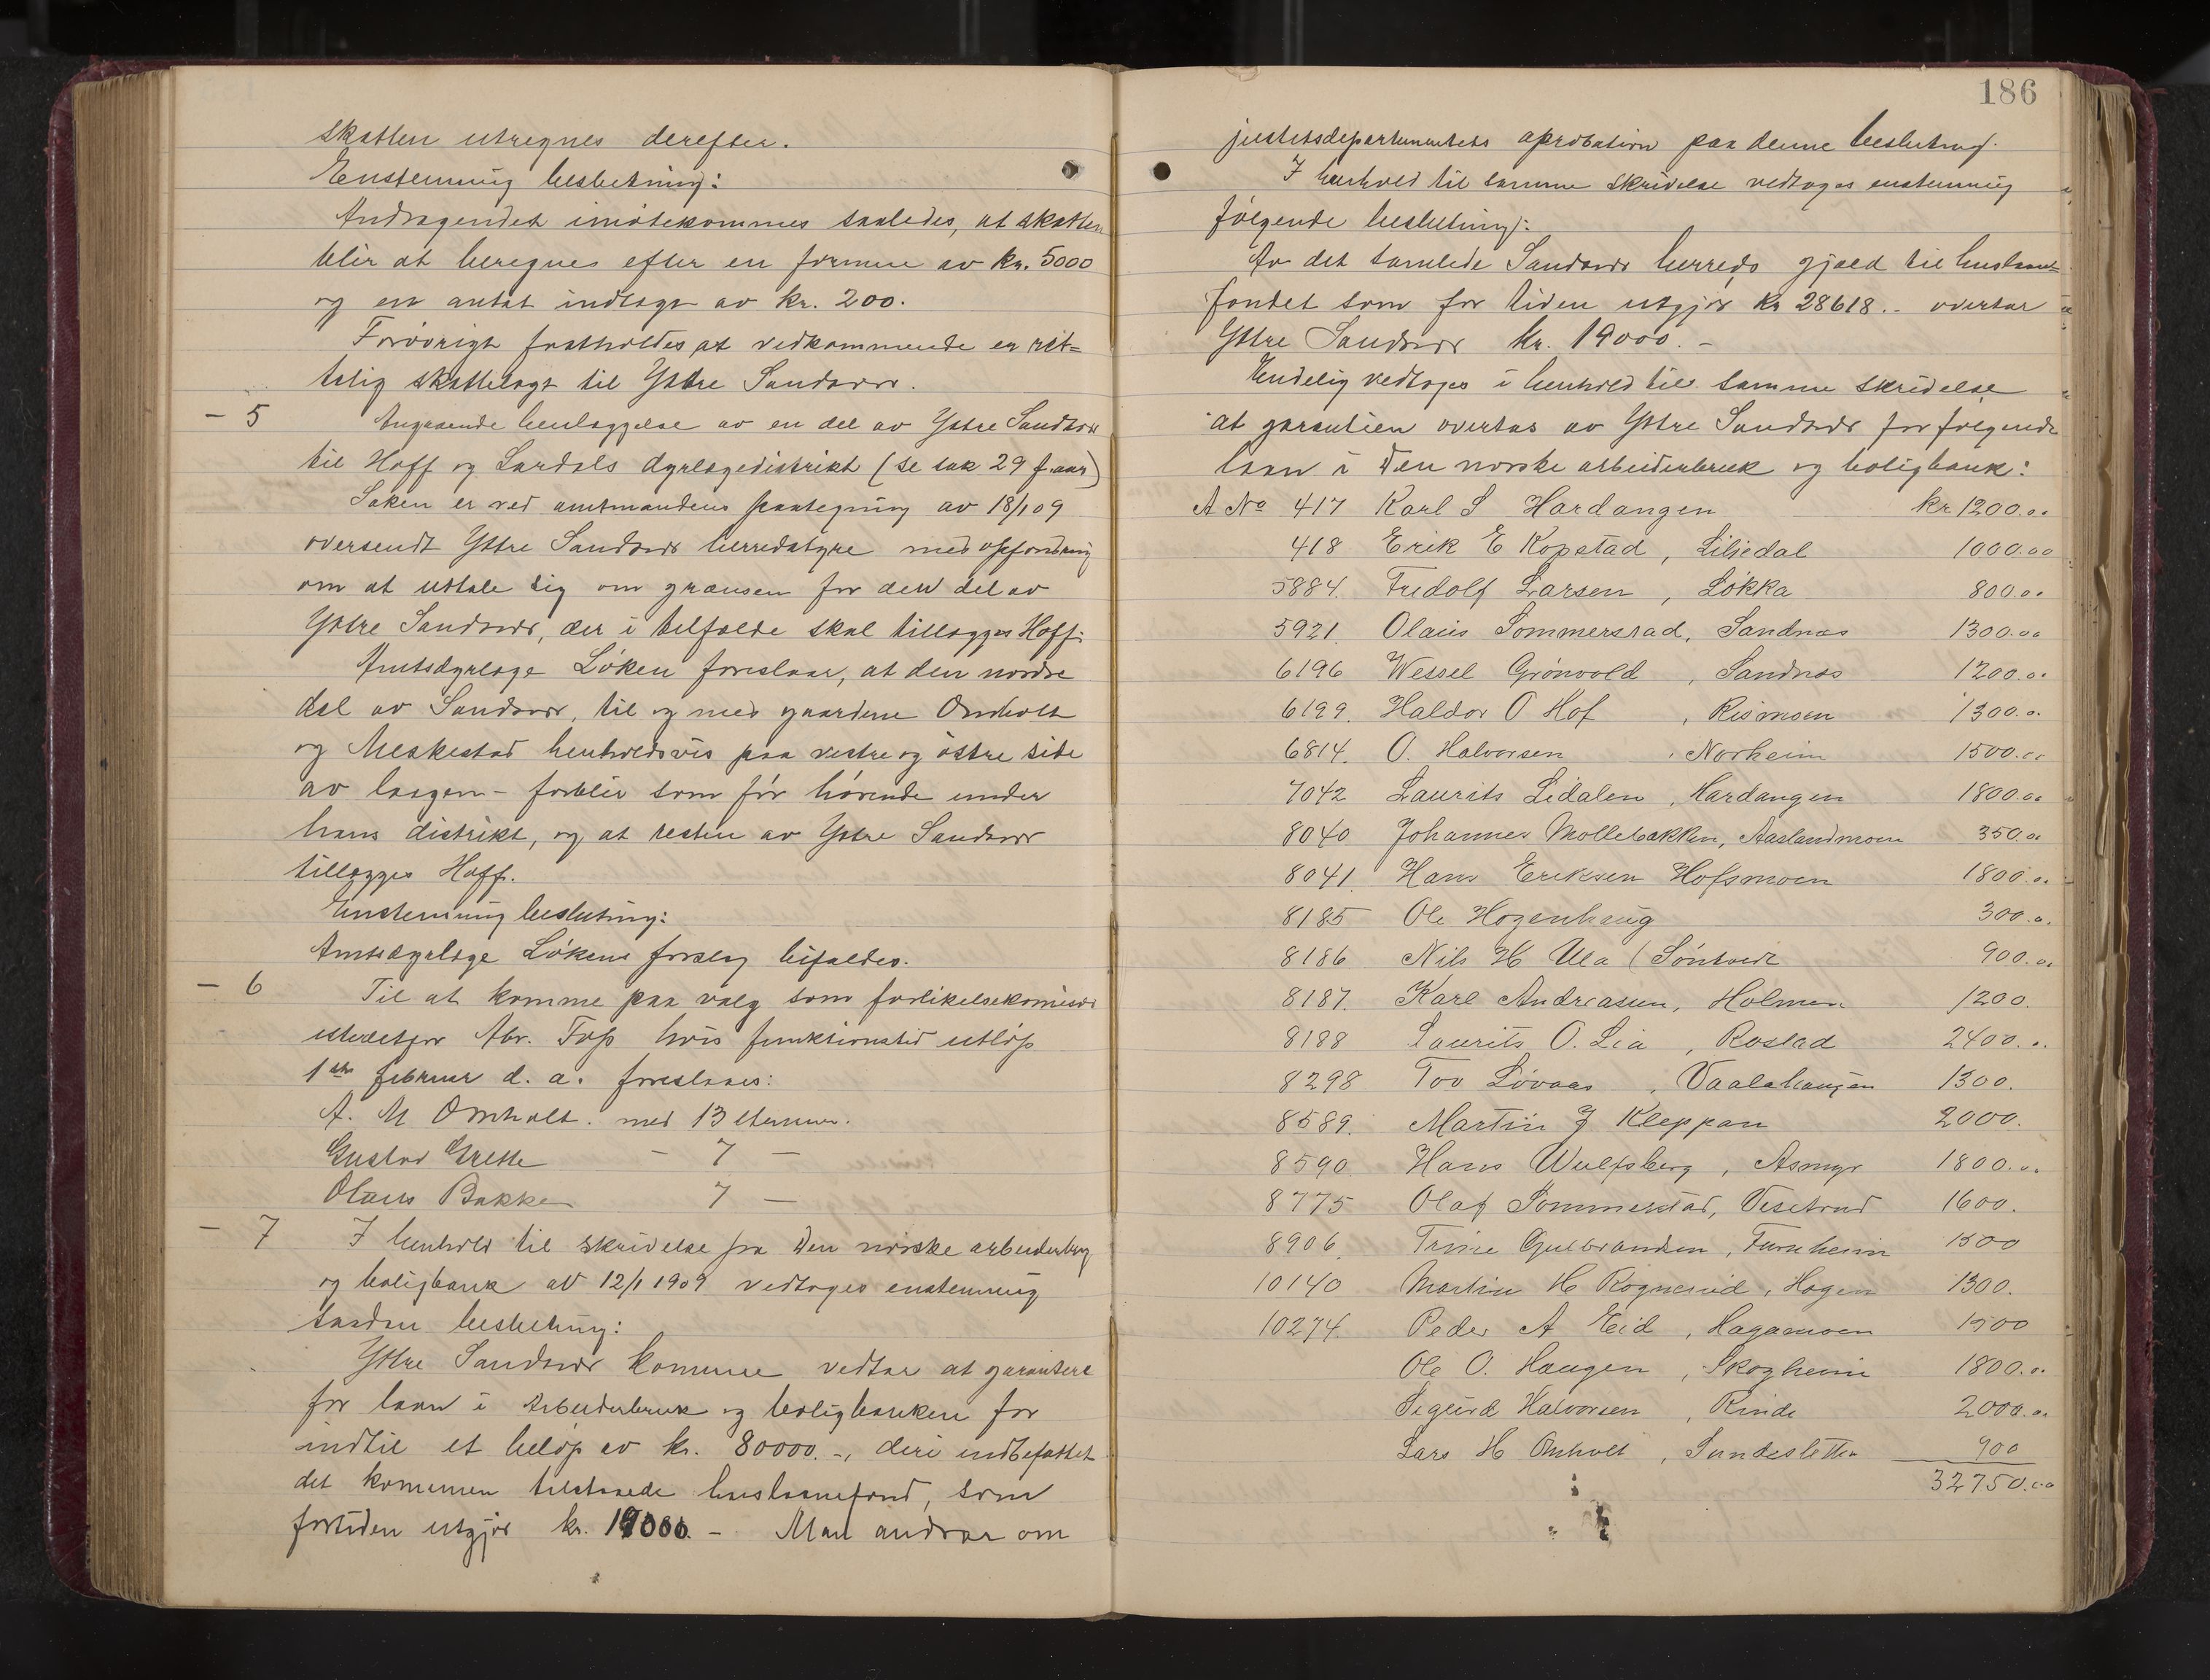 skatten utregnes derefter.
Enstemmig beslutning:
Andragendet imötekommes saaledes, at skatten
blir at beregnes efter en formue av kr. 5000
og en antat indtægt av kr. 200.
Forövrigt fastholdes at vedkommende er ret=
telig skattelagt til Ytre Sandsvær.
- 5 Angaaende henlæggelse av en del av Ytre Sandsvær
til Hoff og Lardals dyrlægedistrikt (se sak 29 f. aar)
Saken er ved amtmandens paategning av 18/1 09
oversendt Yttre Sandsvær herredstyre med opfordring
om at uttale sig om grænsen for den del av
Yttre Sandsvær, der i tilfælde skal tillægges Hoff.
Amtsdyrlæge Löken foreslaar, at den nordre
del av Sandsvær, til og med gaardene Omholt
og Meskestad henholdsvis paa vestre og östre side
av laagen - forblir som för hörende under
hans distrikt, og at resten av Ytre Sandsvær
tillægges Hoff.
Enstemmig beslutning:
Amtsdyrlæge Lökens forslag bifaldes.
- 6 Til at komme paa valg som forlikelseskomisær
istedetfor Abr. Foss hvis funktionstid utlöp
1ste februar d. a. foreslaaes:
A. M Omholt. med 13 stemmer.
Gustav Grette - 7 -
Olaus Bakke 7 -
- 7 I henhold til skrivelse fra Den norske arbeiderbruk
og boligbank av 12/1 1909 vedtoges enstemmig
saadan beslutning:
Yttre Sandsvær kommune vedtar at garantere
for laan i Arbeiderbruk og boligbanken for
indtil et belöp av kr. 80000.-, deri indbefattet
det kommunen tilstaaede huslaanefond, som
fortiden utgjör kr. 19000. - Man andrar om
186
justitsdepartementets aprobation paa denne beslutning.
I henhold til samme skrivelse vedtoges enstemmig
fölgende beslutning:
Av det samlede Sandsvær herreds gjæld til huslaane=
fondet som for tiden utgjör kr 28618.- overtar
Yttre Sandsvær kr. 19000. -
Endelig vedtoges i henhold til samme skrivelse
at garantien overtas av Yttre Sandsvær for fölgende
laan i Den norske arbeiderbruk og boligbank:
A No 417 Karl S Hardangen kr 1200.00
418 Erik E Kopstad, Liliedal 1000.00
5884. Fridolf Larsen, Lökka 800.00
5921. Olaus Sommerstad, Sandnæs 1300.00
6196 Wessel Grönvold, Sandnæs 1200.00
6199. Haldor O Hof, Rismoen 1300.00
6814. O. Halvorsen, Norheim 1500.00
7042 Laurits Lidalen, Hardangen 1800.00
8040 Johannes Möllebakken, Aaslandmoen 350.00
8041. Hans Eriksen Hofsmoen 1800.00
8185 Ole Hogenhaug 300.00
8186 Nils H Ula (Söntvedt 900.00
8187. Karl Andreasen, Holmen 1200.
8188 Laurits O. Lia, Rostad 2400.00
8298 Tov Lövaas, Vaalehaugen 1300.
8589. Martin J Kleppan 2000.
8590 Hans Wulfsberg, Asmyr 1800.00
8775 Olaf Sommerstad, Visetrud 1600.
8906. Trine Gulbrandsen, Furuheim 1500
10140 Martin H Rognerud, Hagen 1300.
10274. Peder A Eid, Hagamoen 1500
Ole O. Haugen, Skogheim 1800.00
Sigurd Halvorsen, Rinde 2000.00
Lars H Omholt, Sundesletten 900
32750.00